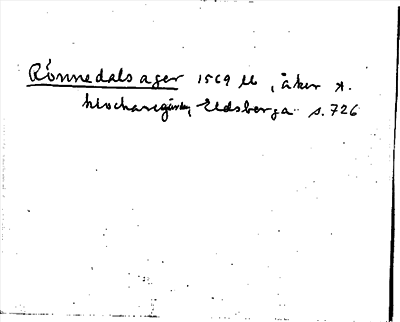 Rönnedals ager 1569 lb, åker t.
klockaregården, Eldsberga s. 726